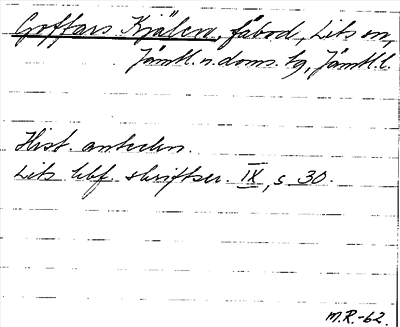 Goffars Kjälen, fäbod, Lits sn,
Jämtl. n. doms. tg, Jämtl. l.
Hist. anteckn.
Lits hbf. skriftser. IX, s 30.
M.R.-62.